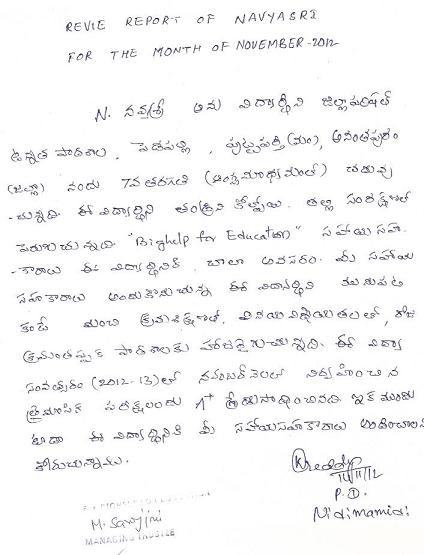 REVIE REPORT OF NAVYASRI
FOR THE MONTH OF NOVEMBER-2012
N. నవ్యశ్రీ అను విద్యార్థిని జిల్లాపరిషత్
ఉన్నత పాఠశాల, పెడపల్లి, పుట్టపర్తి (మం), అనంతపురం
(జిల్లా) నందు 7వ తరగతి (ఆంగ్లమాధ్యమంలో) చదువు
-చున్నది. ఈ విద్యార్థిని తండ్రిని కోల్పోయి. తల్లి సంరక్షణలో
పెరుగుచున్నది "Bighelp for Education" సహాయసహ-
-కారాలు ఈ విద్యార్థినికి చాలా అవసరం. మీ సహాయ
సహకారాలు అందుకొనుచున్న ఈ విద్యార్థిని మునుపటి
కంటే మంచి క్రమశిక్షణతో, వినయవిధేయతలతో, రోజు
క్రమంతప్పక పాఠశాలకు హాజరైయగుచున్నది. ఈ విద్యా
సంవత్సరం (2012-13)లో నవంబర్ నెలలో నిర్వహించిన
త్రైమాసిక పరీక్షలందు A+ శ్రేయుసాధించినది. ఇక ముందు
కూడా ఈ విద్యార్థినికి మీ సహాయసహకారాలు అందించాలని
కోరుచున్నాము.
Kreddy
14/11/12
P.D.
Nidimamidi
M. Sarojini
MANAGING TRUSTEE